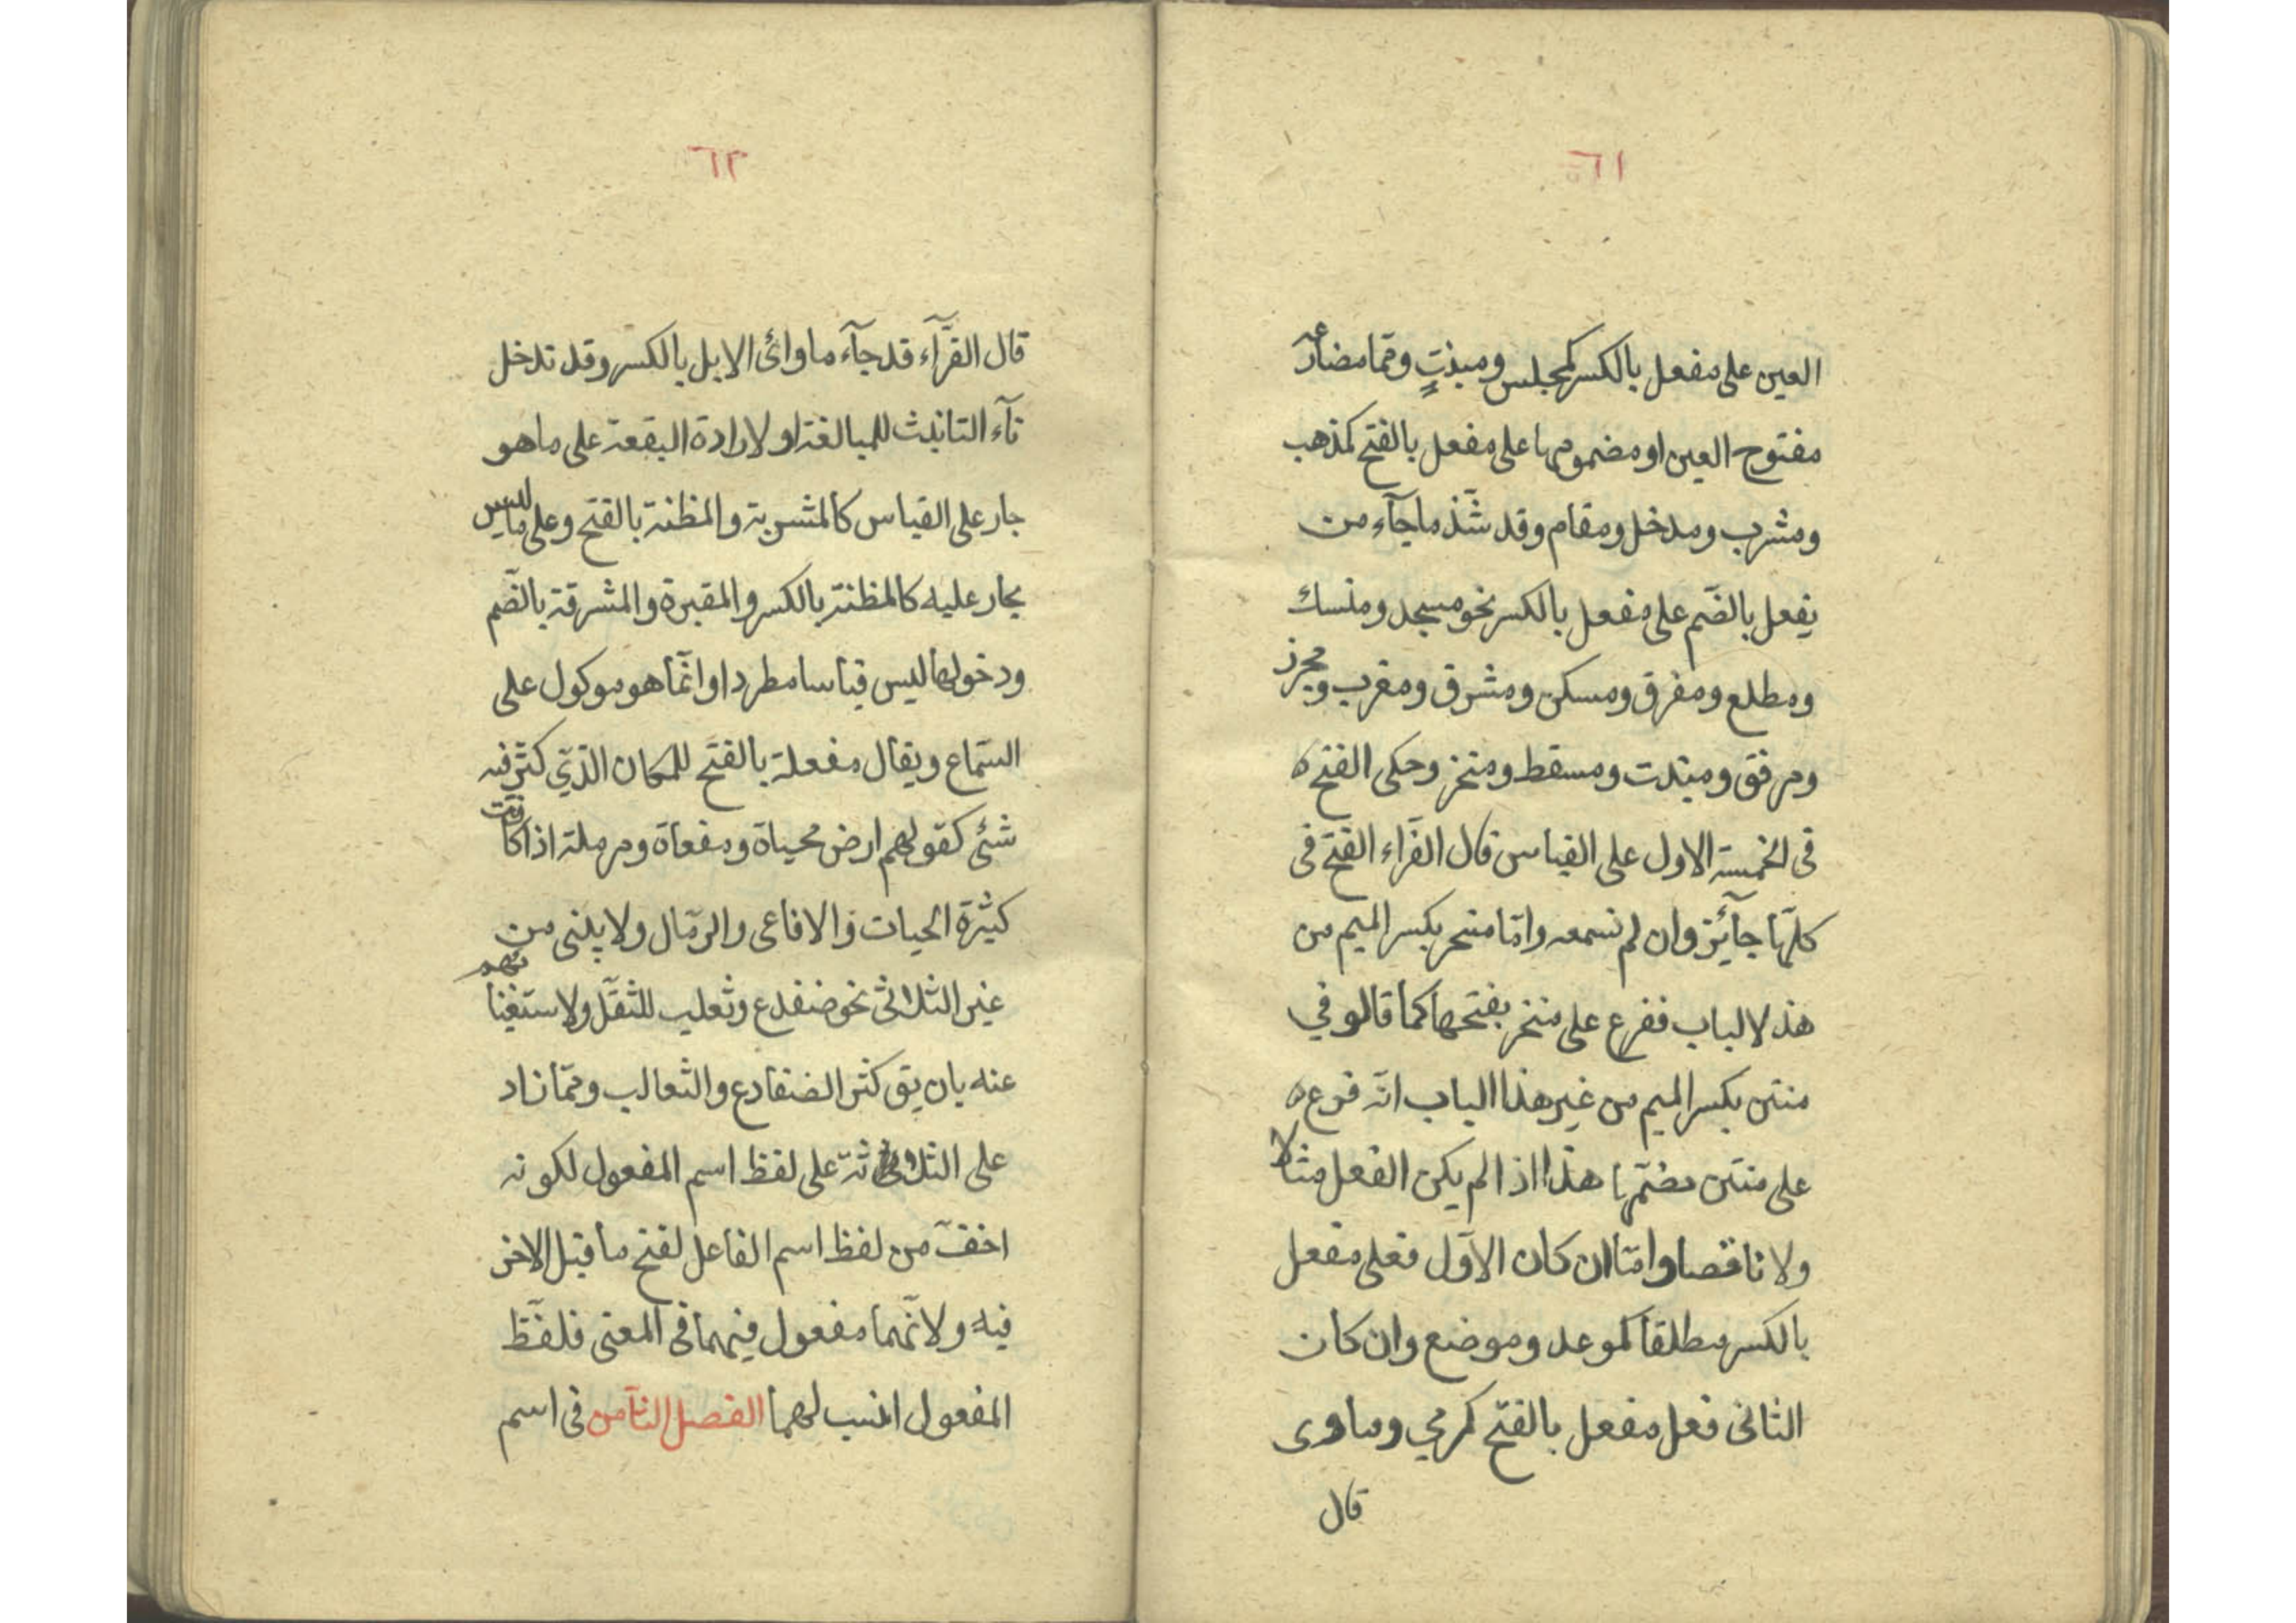 ٦١
العين على مفعل بالكسر كمجلس ومبيت وممّا مضارعه
مفتوح العين او مضمومها على مفعل بالفتح كمذهب
ومشرب ومدخل ومقام وقد شذّ ما جآء من
يفعل بالضّم على مفعل بالكسر نحو مسجد ومنسك
ومطلع ومفرق ومسكن ومشرق ومغرب ومجزر
ومرفق ومنبت ومسقط ومنخر وحكى الفتح
فى الخمسة الاول على القياس قال الفرّاء الفتح فى
كلّها جآئز وان لم نسمعه وامّا منخر بكسر الميم من
هذ لالباب ففرع على منخر بفتحها كما قالو في
منتن بكسر الميم من غير هذا الباب انّه فرع
على منتن بضمّها هذا اذا لم يكن الفعل مثالا
ولا ناقصا وامّا ان كان الاوّل فعلى مفعل
بالكسر مطلقا كموعد وموضع وان كان
الثانى فعل مفعل بالفتح كرمي وماوى
قال
٦٢
قال الفرّآء قد جآء ماوائ الابل بالكسر وقد تدخل
تآء التانيث للمبالغة او لارادة البقعة على ما هو
جار على القياس كالمشربة والمظنة بالفتح وعلى ما ليس
بجار عليه كالمظنة بالكسر والمقبرة والمشرقة بالضّم
ودخولها ليس قياسا مطردا وانّما هو موكول على
السّماع ويقال مفعلة بالفتح للمكان الذّي كثر فيه
شئ كقولهم ارض محياة ومفعاة ومرملة اذا كانت
كثيرة الحيات والافاعى والرمّال ولا يبنى من
غير الثلاثى نحو ضفدع وثعلب للثقل ولاستغنائهم
عنه بان يق كثر الضفادع والثعالب وممّا زاد
على الثلاثة على لفظ اسم المفعول لكونه
اخفّ من لفظ اسم الفاعل لفتح ما قبل الاخر
فيه ولانّهما مفعول فيهما فى المعنى فلفظ
المفعول انسب لهما الفصل الثآمن فى اسم